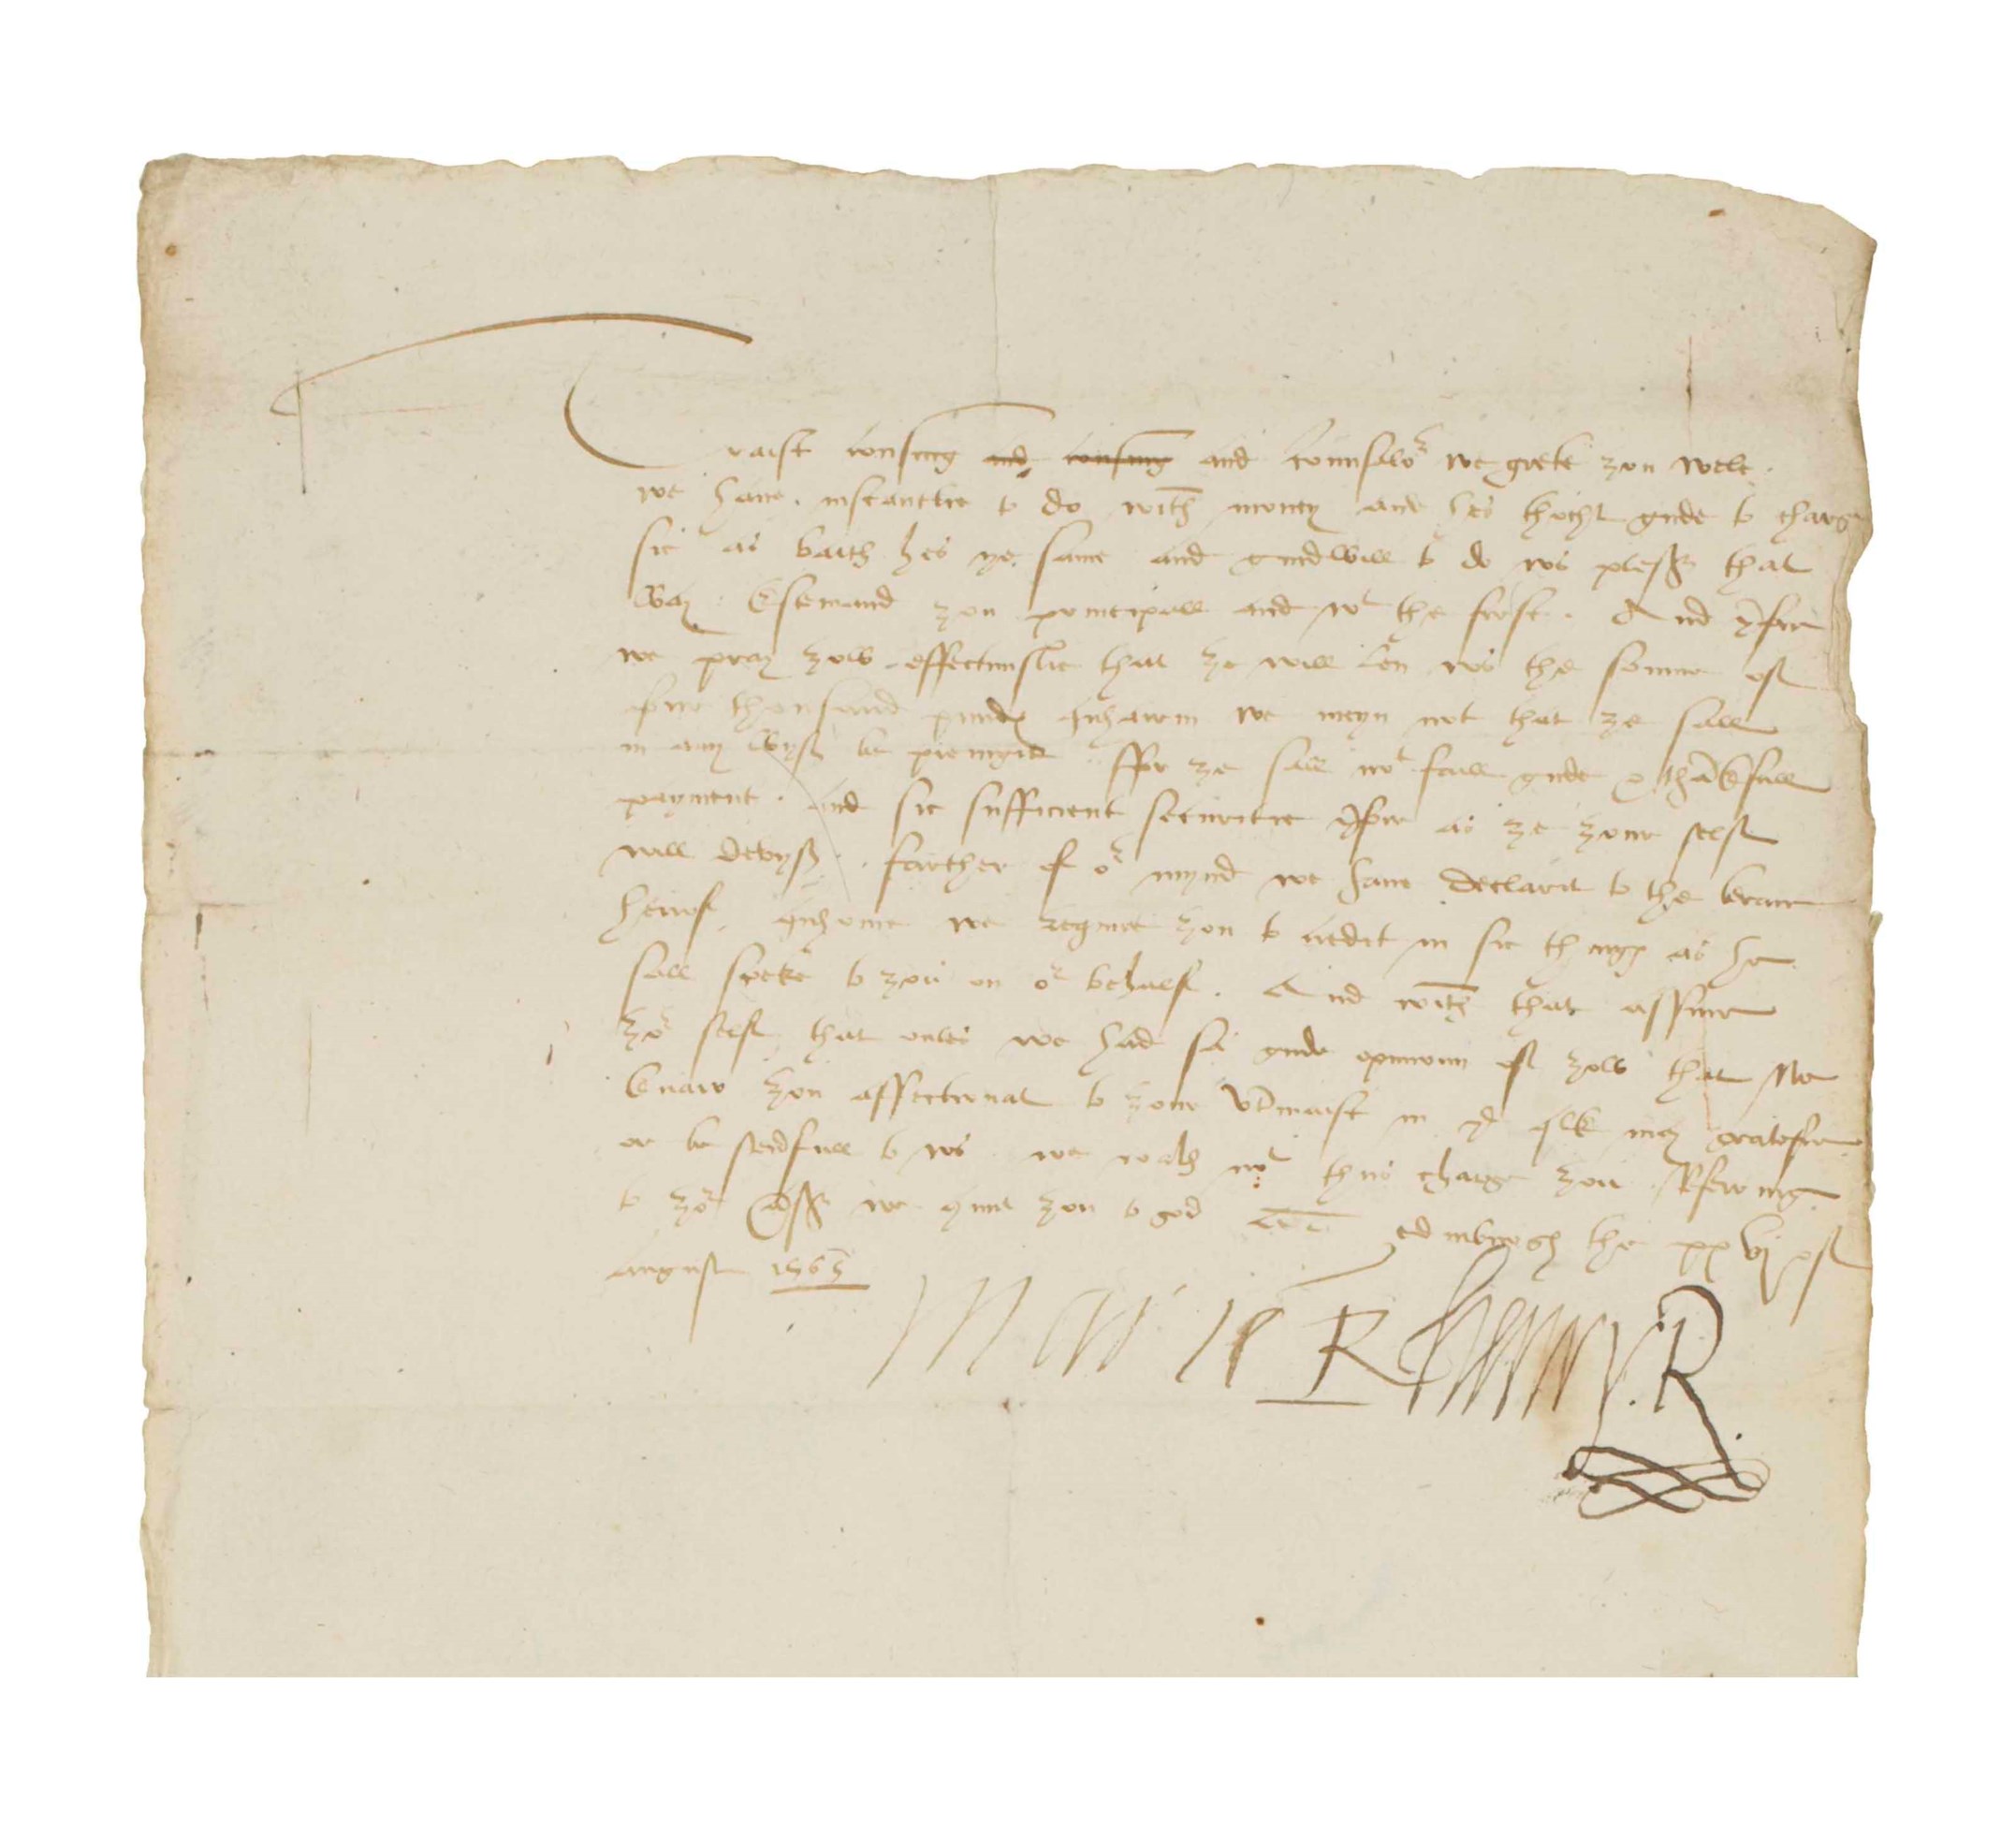 Traist cousing and cousing and counsalor we grete zou wele.
we have instantlie to do with money and hes thocht gude to charge
sic as baith hes ye same and gudwill to do ws pless that
way Estemand zou principall and nocht the first. And yrfor
we pray zow effectuuslie that ze will len ws the soume of
four thousand pundis quhairin we meyn not that ze sall
in any wyss be For ze sall nocht faill gude & thākfull
payment. And sic sufficient securitie yrfor as ze zour self
will devyss. farther of or mynd we have declarit to the berare
heirof quhome we requere zou to credit in sic thingis as he
sall speke to zou on or behalf. And with that assure
zor self that onles we had sa gude opinioun of zow that we
knaw zou affectionat to zour vtermaist in yt qlk may gratefie
or be steidfull to ws we wald nocht thus charge zou.
to zor we zou to god At edinburgh the xxvj of
august 1565
Marie R Henry. R